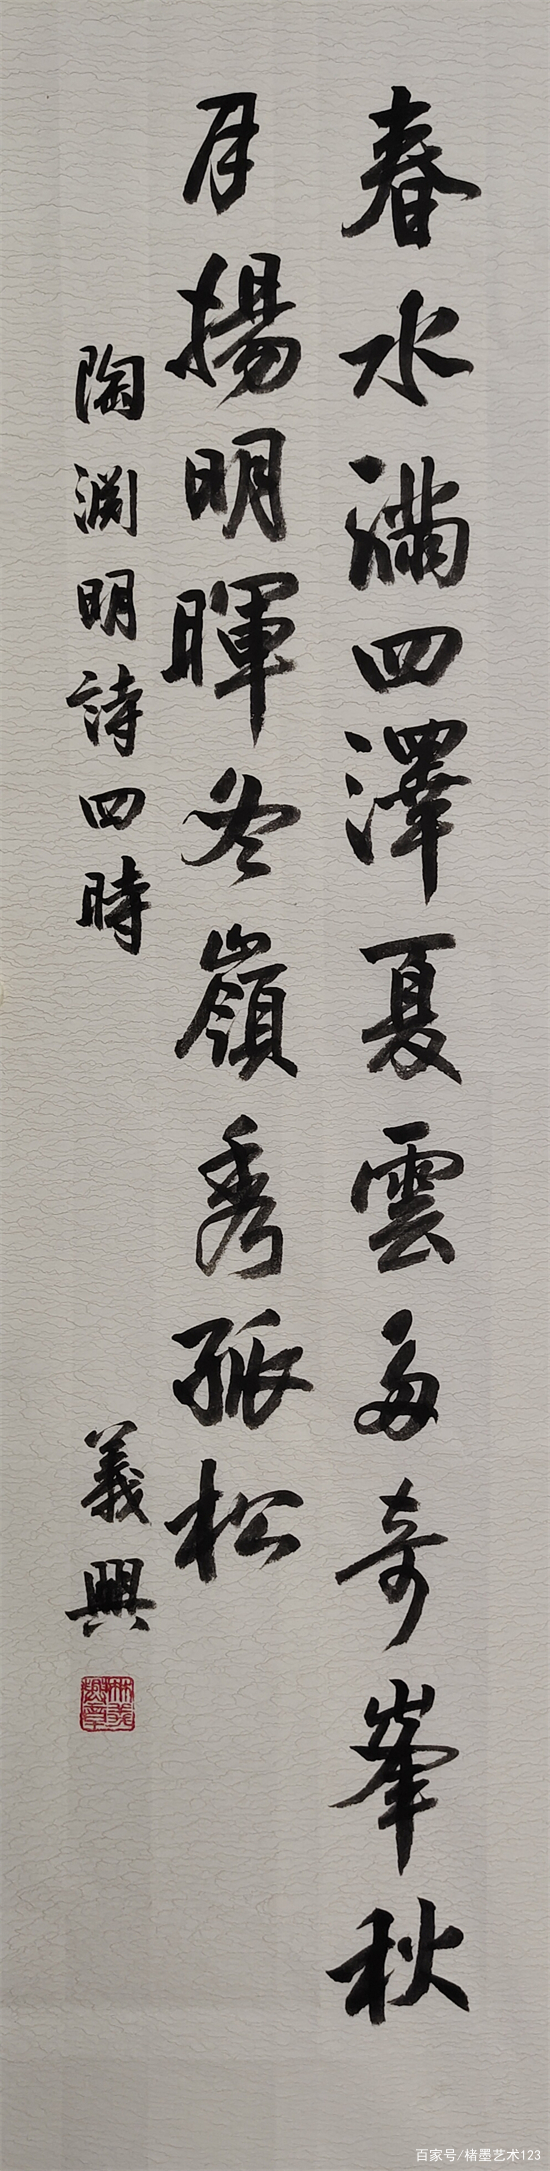 春水滿四澤夏雲多奇峯秋
月揚明暉冬嶺秀孤松
陶渊明詩四時
義興
百家号/楮墨艺术123